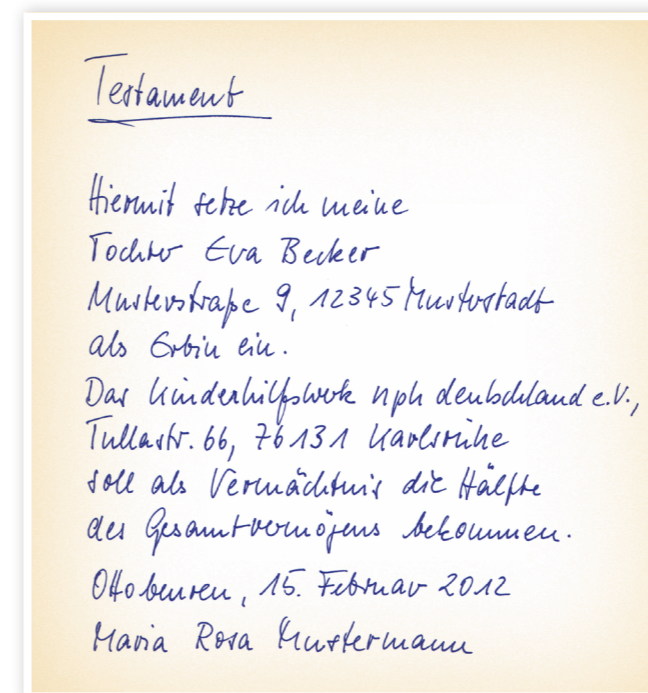 Testament
Hiermit setze ich meine
Tochter Eva Becker
Musterstraße 9, 12345 Musterstadt
als Erbin ein.
Das Kinderhilfswerk nph deutschland e.V.,
Tullastr. 66, 76131 Karlsruhe
soll als Vermächtnis die Hälfte
des Gesamtvermögens bekommen.
Ottobeuren, 15. Februar 2012
Maria Rosa Mustermann